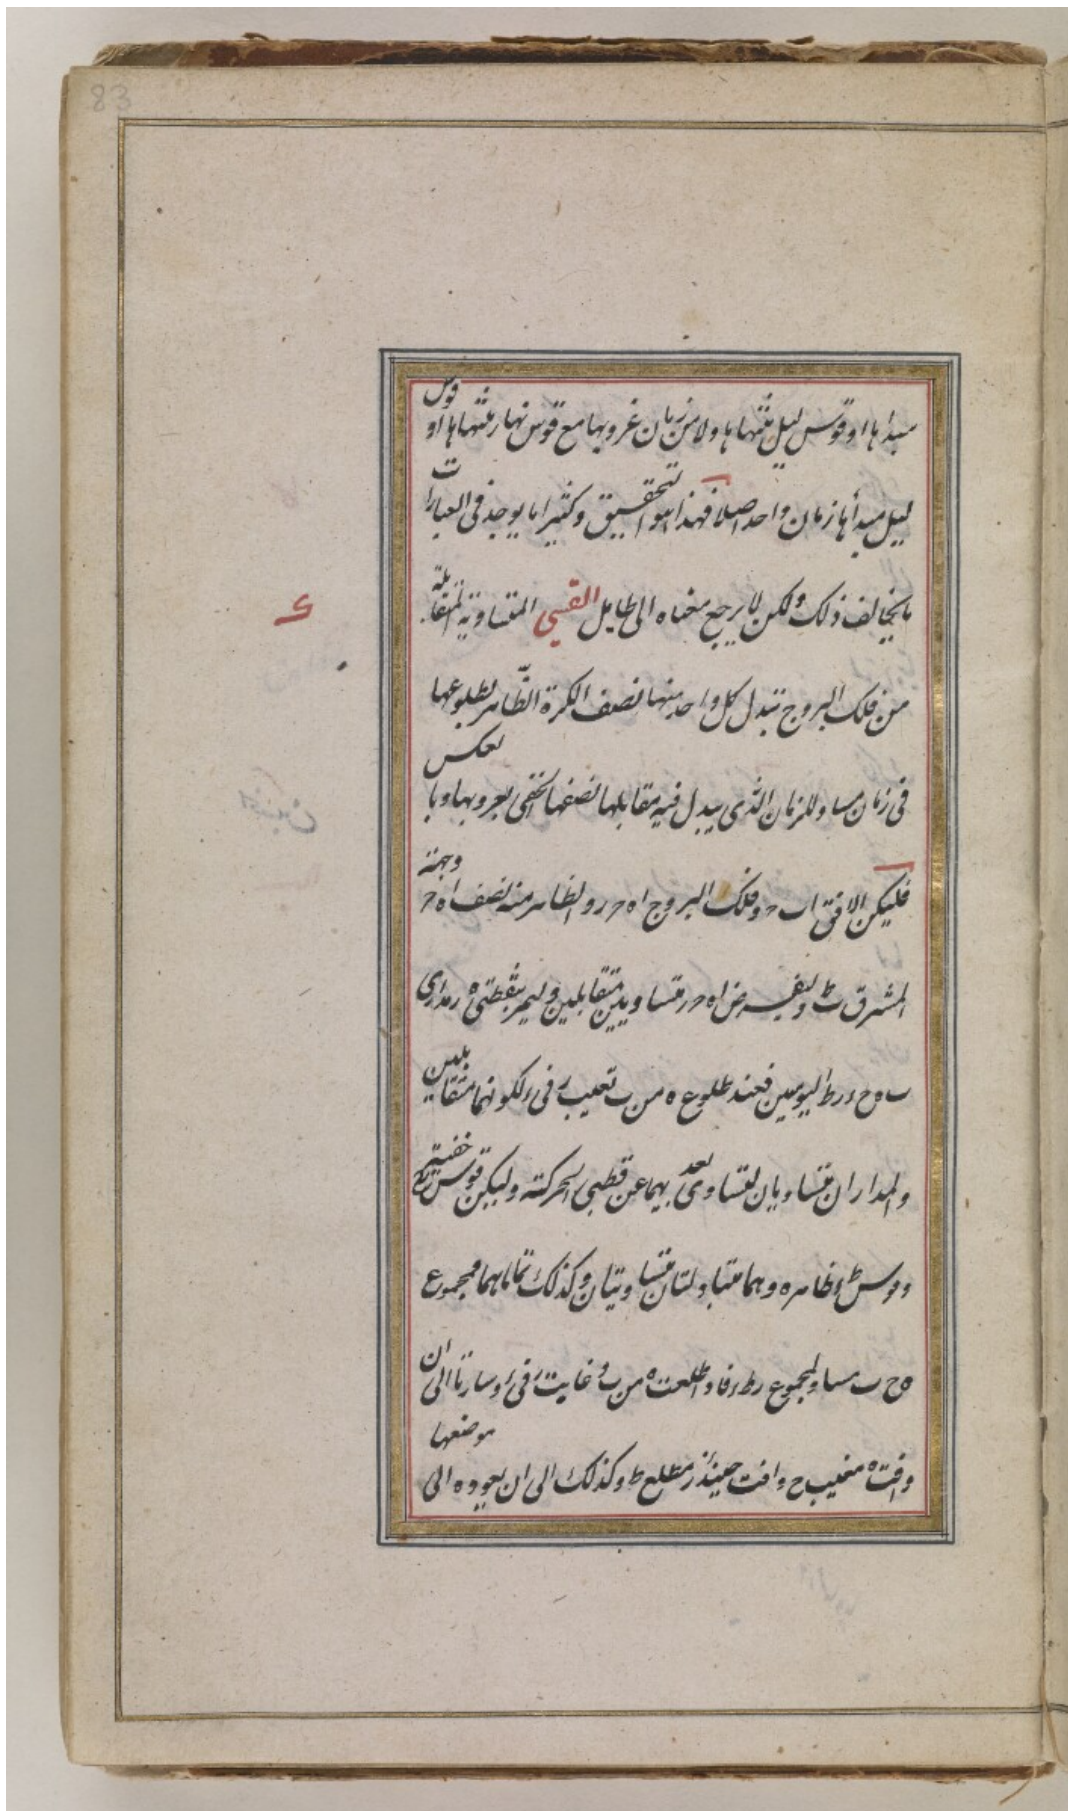 83
مبدأها او قوس ليل منتهاها ولا من زمان غروبها مع قوس نهار منتهاها او قوس
ليل مبدأها زمان واحد اصلا فهذا هو التحقيق وكثيرا ما يوجد في العبارات
ما يخالف ذلك ولكن لا يرجع معناه الى طايل القسى المتساوية المتقابلة
ى
من فلك البروج تبدل كل واحد منها نصف الكرة الظّاهر بطلوعها
في زمان مساو للزمان الذي يبدل فيه مقابلها نصفها الخفي بغروبها وبالعكس
فليكن الافق اب ح وفلك البروج اه ح ر والظاهر منه نصف اه ح وجهة
المشرق ط وليفرض اه ح ر متساويين متقابلين وليمر بنقطتي ه ر مدارى
ب ه ح ء ر ط اليوميين فعند طلوع ه من ب تغيب ر في ء لكونهما متقابلين
والمداران متساويان لتساوى بعديهما عن قطبى الحركة وليكن قوس ح خفية
وقوس ط ظاهره وهما متبادلتان متساويتان وكذلك تماماهما فمجموع
ه ح ب مساو لمجموع ر ط ء فاذا طلعت ه من ب وغابت ر في ء وسارتا الى ان
وافت ه مغيب ح وافت حينئذ ر مطلع ط وكذلك الى ان يعود ه الى موضعها